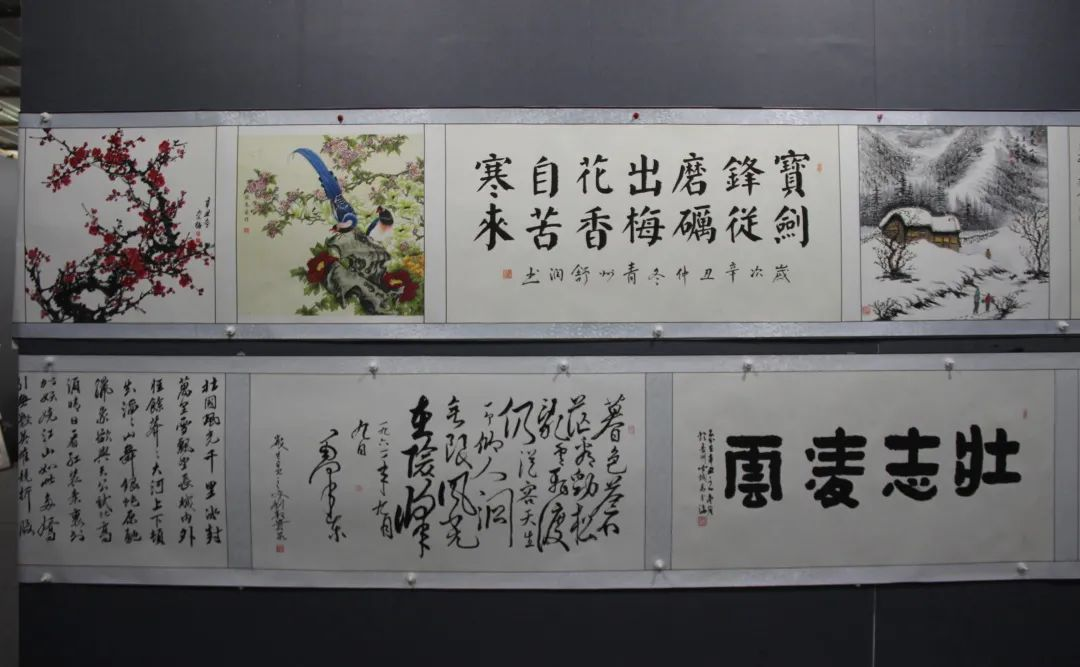 寶劍
鋒従
磨礪
出梅
花香
自苦
寒来
歲次辛丑仲冬青州舒润书
壮志凌雲
暮色蒼
茫看勁松
亂雲飛渡
仍從容天生
一個仙人洞
無限風光
在險峰
一九六一年九月
九日
毛澤東
北國風光千里冰封
萬里雪飘望長城内外
惟餘莽々大河上下頓
失滔々山舞銀蛇原馳
蠟象欲與天公試比高
須晴日看紅装素裹分
外妖嬈江山如此多嬌
引無數英雄競折腰